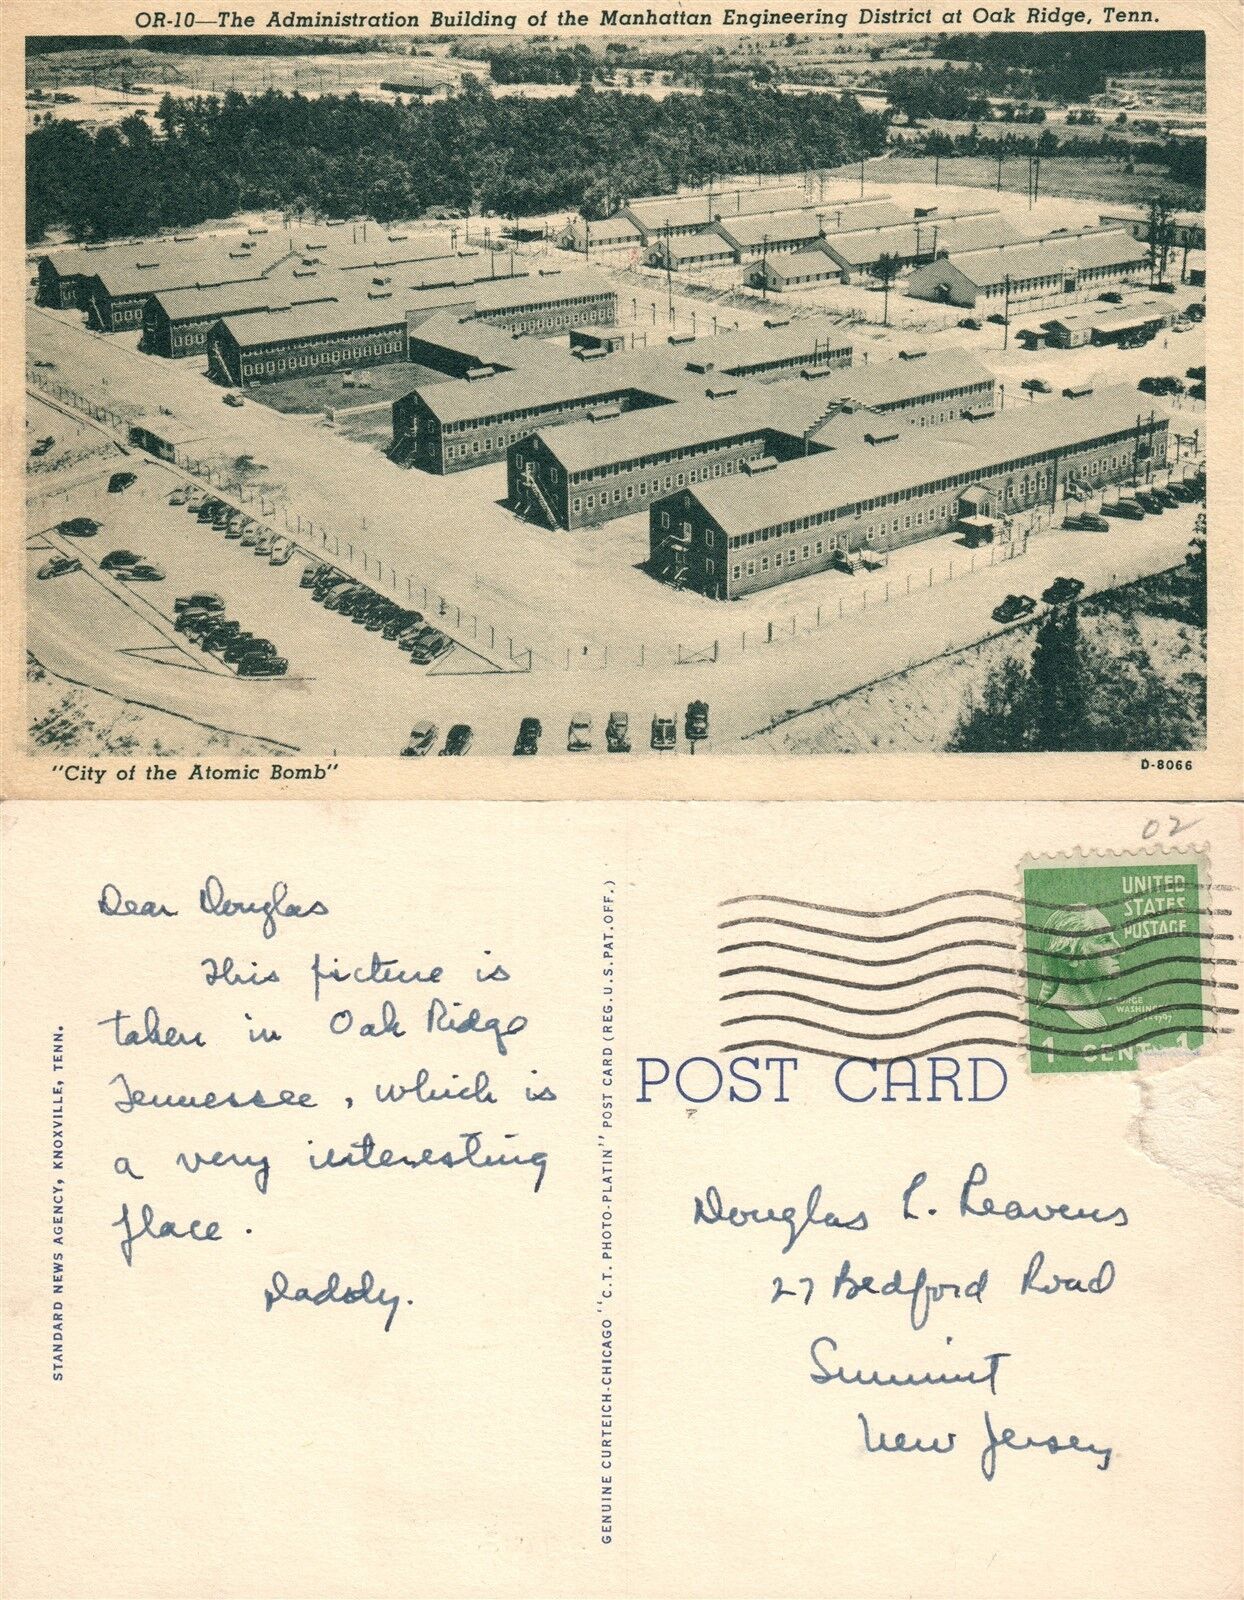 OR-10—The Administration Building of the Manhattan Engineering District at Oak Ridge, Tenn.
"City of the Atomic Bomb"
D-8066
02
Dear Douglas
This picture is
taken in Oak Ridge
Tennessee, which is
a very interesting
place.
Daddy.
STANDARD NEWS AGENCY, KNOXVILLE, TENN.
GENUINE CURTEICH-CHICAGO "C.T. PHOTO-PLATIN" POST CARD (REG. U.S. PAT. OFF.)
UNITED
STATES
POSTAGE
GEORGE
WASHINGTON
1 CENT 1
POST CARD
Douglas L. Leavens
27 Bedford Road
Summit
New Jersey